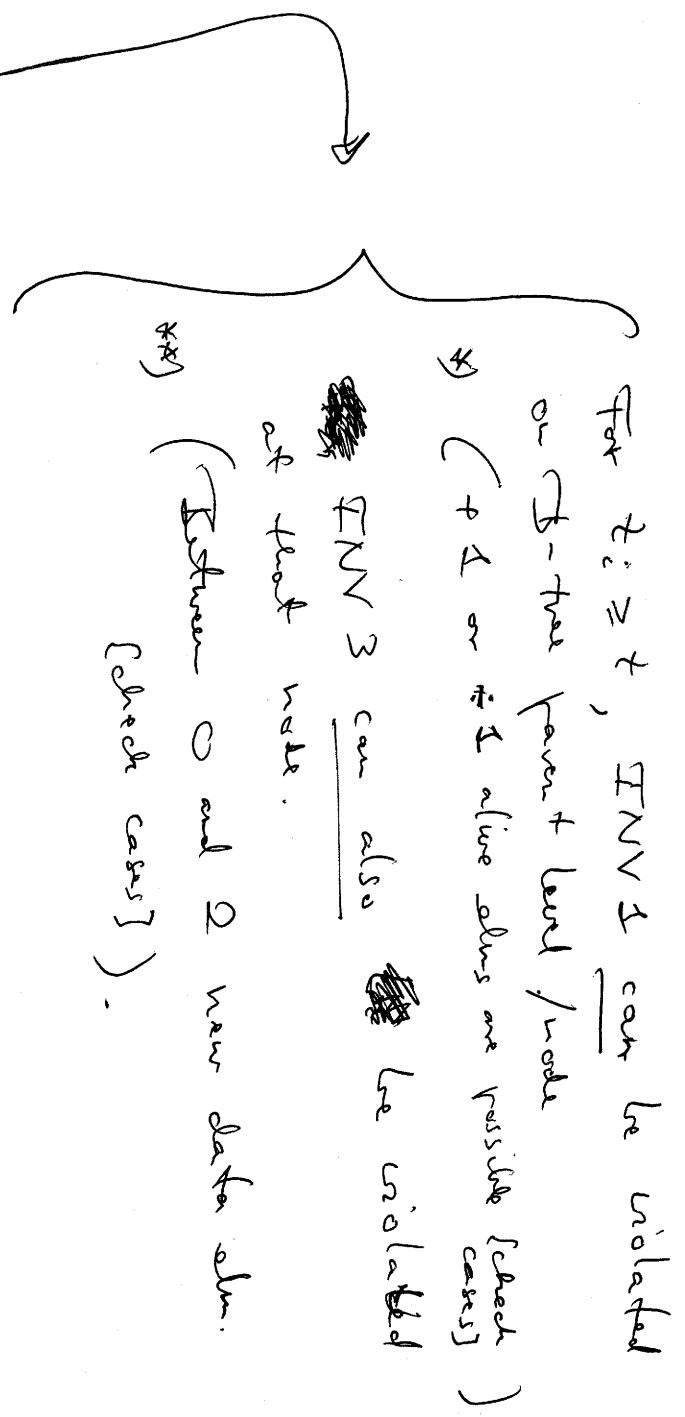 For tᵢ ≥ t, INV1 can be violated
on B-tree parent level/node
*) (+1 or 1 alive elms are possible [check
cases])
INV 3 can also be violated
at that node.
**) (Between 0 and 2 new data elm.
[check cases]).